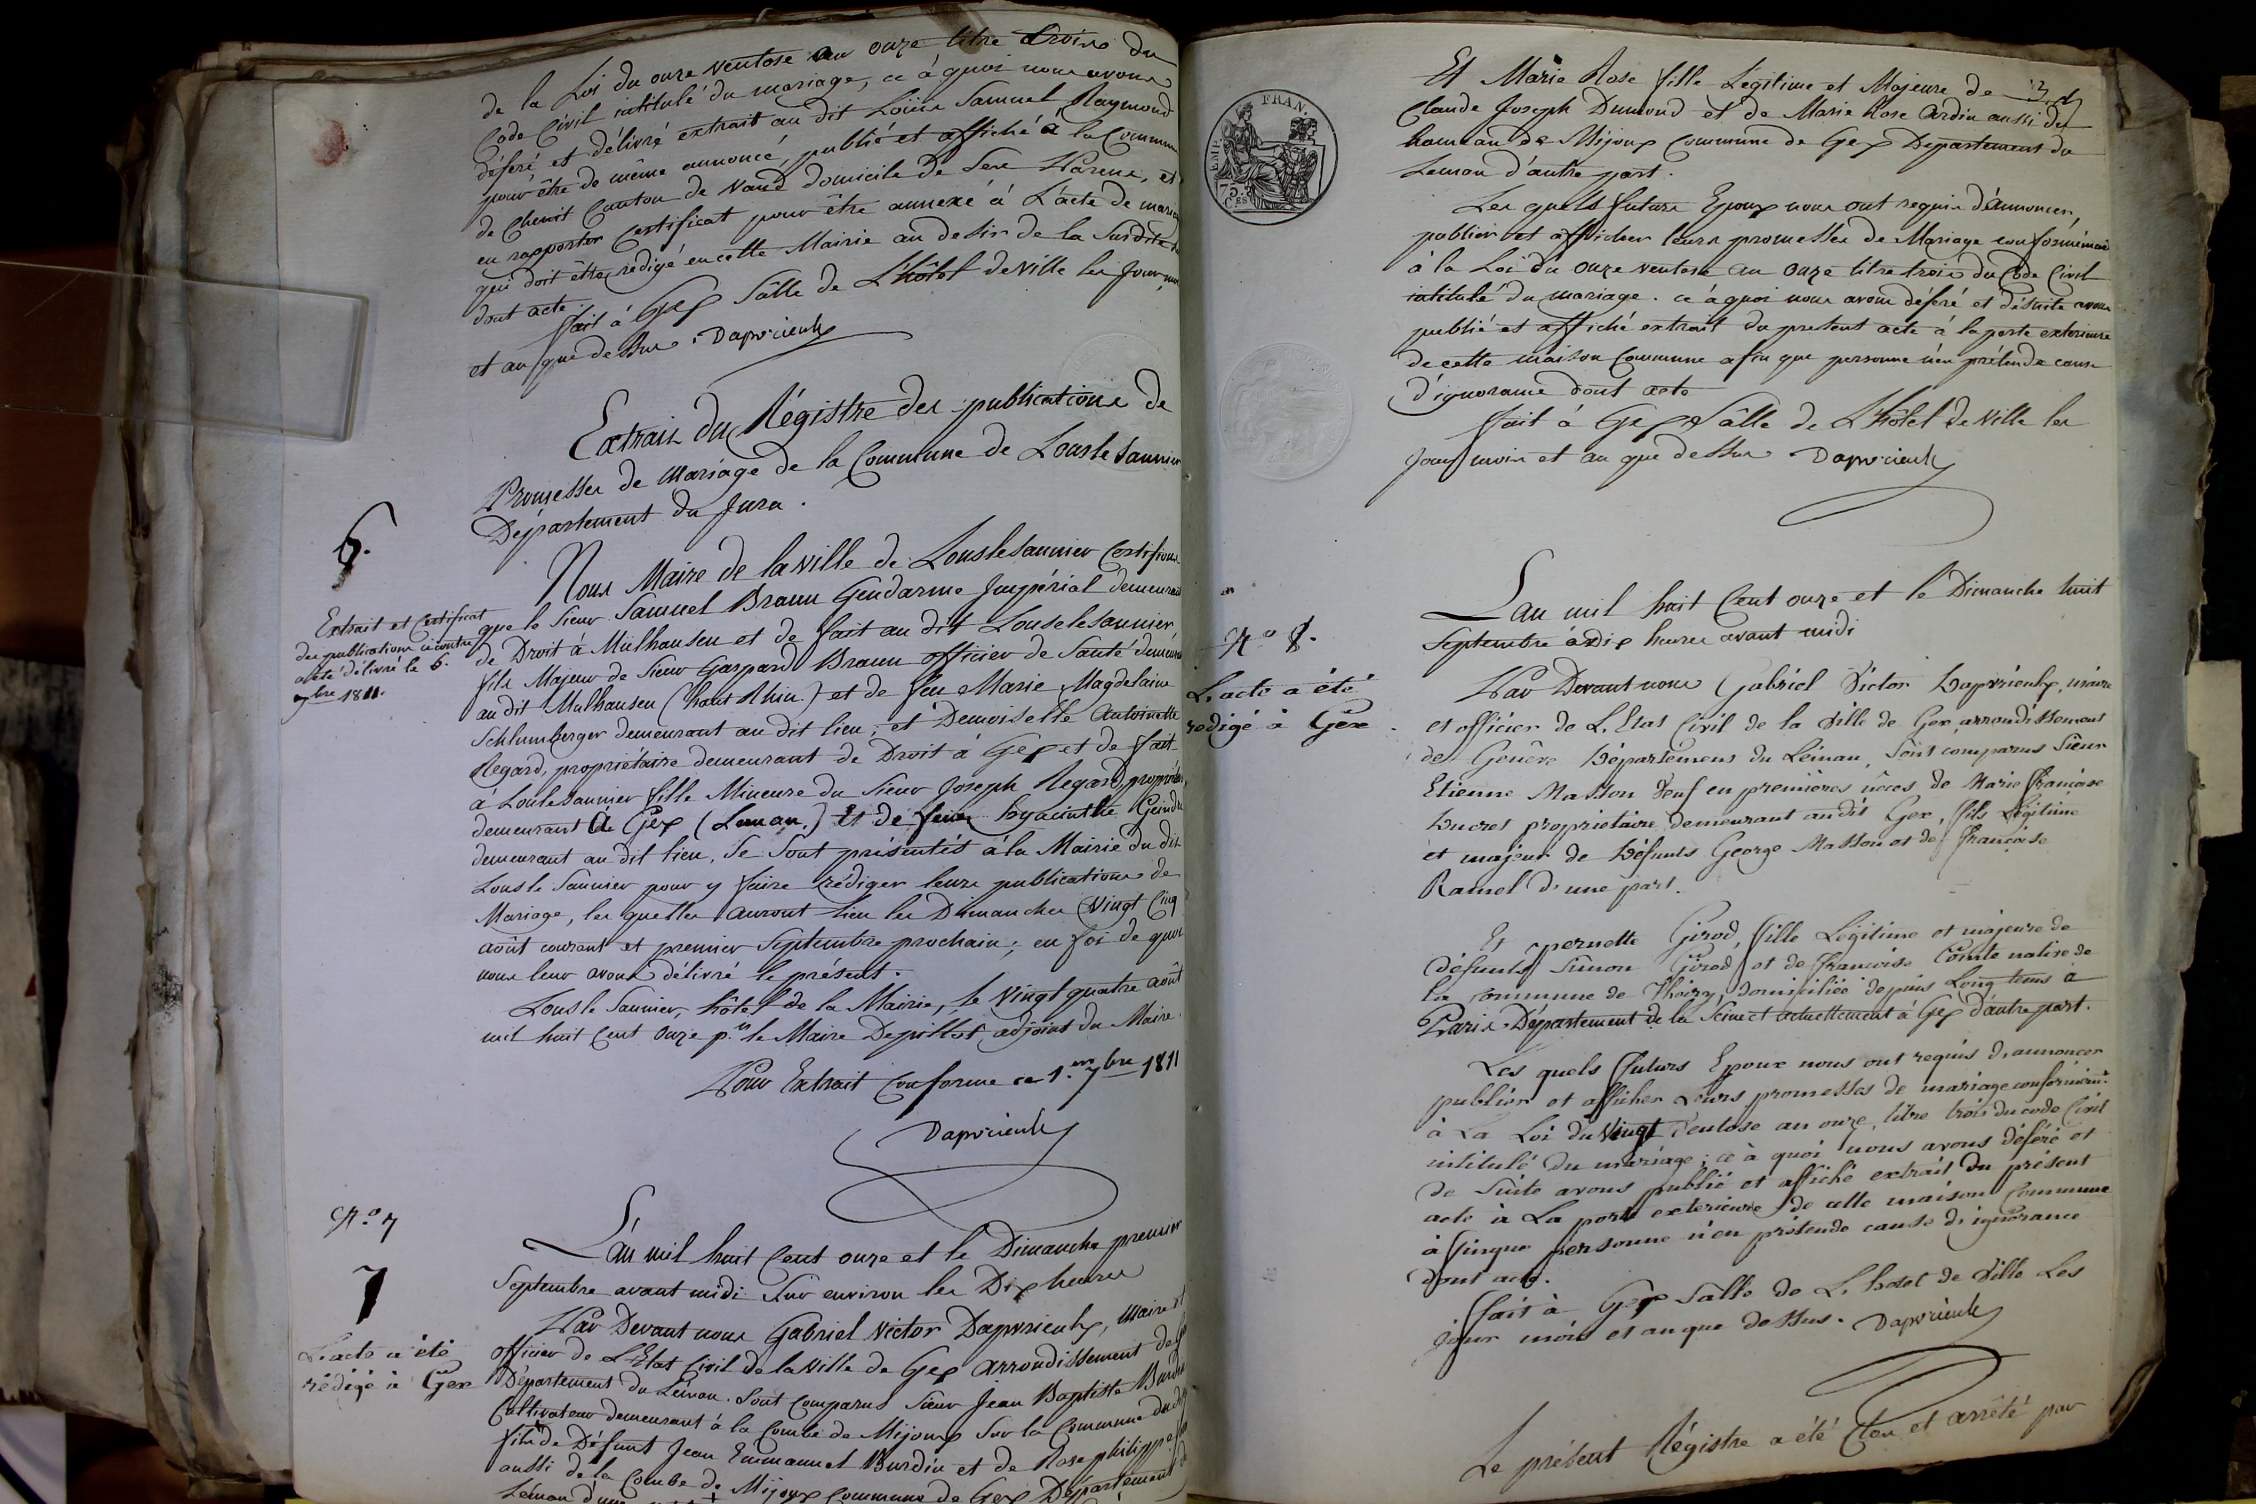 de la Loi du onze ventose an onze titre trois du
Code Civil intitulé du mariage, ce à quoi nous avons
déféré et délivré extrait au dit Loüis Samuel Raymond
pour être de même annoncé, publié et affiché à la Commune
de Chenit Canton de Vaud domicile de ses Parens, et
en rapporter Certificat pour être annexé à L'acte de
qui doit être redigé en cette Mairie au desir de la Susdite
dont acte
fait à Gex Sâlle de L'hôtel de Ville les Jour,
et an que dessus. Dapvrieulx
Extrait du Régistre des publications de
Promesses de Mariage de la Commune de Lonsle Saunier
Département du Jura.
6.
Extrait et Certificat
des publications ci contre
a été délivré le 6.
7bre 1811.
Nous Maire de la ville de Lonslesaunier Certifions
que le Sieur Samuel Braun Gendarme Impérial demeurant
de Droit à Mulhausen et de fait au dit Lonselesaunier
fils Majeur de Sieur Gaspard Braun officier de Santé demeurant
au dit Mulhausen (haut Rhin.) et de feu Marie Magdelaine
Schlumberger demeurant au dit lieu; et Demoiselle Antoinette
Regard, propriétaire demeurant de Droit à Gex et de fait
à Lonlesaunier fille Mineure du Sieur Joseph Regard,
demeurant à Gex (Leman.) Et de hyacinthe
demeurant au dit lieu, Se Sont présentés à la Mairie du dit
Lonsle Saunier pour y faire rédiger leurs publications de
Mariage, les quelles auront lieu les Dimanches Vingt Cinq
août courant et premier Septembre prochain; en foi de quoi
nous leur avons délivré le présent.
Lonsle Saunier, hôtel de la Mairie, le Vingt quatre août
mil huit Cent onze pr. le Maire Depillot, adjoint du Maire.
Pour Extrait Conforme ce 1.er 7bre 1811
Dapvrieulx
N.o 7
7
L'acte a été
rédigé à Gex
L'an mil huit Cent onze et le Dimanche premier
Septembre avant midi Sur environ les Dix heures
Par Devant nous Gabriel Victor Dapvrieulx, Maire et
officier de L'Etat Civil de la Ville de Gex arrondissement de
Département du Léman. Sont Comparus Sieur Jean Baptiste Burdin
Cultivateur demeurant à la Combe de Mijoux Sur la Commune du dit
fils de Défunt Jean Emmanuel Burdin et de Rose philippe
aussi de la Combe de Mijoux Commune de Gex Département
Léman d'une
Et Marie Rose fille Légitime et Majeure de
Claude Joseph Dumond et de Marie Rose Ardin aussi du
hameau de Mijoux Commune de Gex Département du
Leman d'autre part.
Les quels futurs Epoux nous ont requis d'annoncer,
publier et afficher leurs promesses de Mariage conformément
à la Loi du onze ventose an onze titre trois du Code Civil
intitulé du mariage. ce à quoi nous avons déféré et de suite avons
publié et affiché extrait du present acte à la porte exterieure
de cette maison Commune afin que personne n'en prétende cause
d'ignorance dont acte
fait à Gex Sâlle de L'hôtel de Ville les
Jour, mois et an que dessus Dapvrieulx
FRAN.
EMP.
75.
Ces
N.o 8.
L'acte a été
redigé à Gex
L'an mil huit Cent onze et le Dimanche huit
Septembre à dix heures avant midi
Par Devant nous Gabriel Victor Dapvrieulx, maire
et officier de L'Etat Civil de la Ville de Gex, arrondissement
de Genêve Département du Léman, Sont comparus Sieur
Etienne Masson Veuf en premières nôces de Marie Françoise
Ducret propriétaire demeurant au dit Gex, fils Légitime
et majeur de Défunts George Masson et de Françoise
Ramel d'une part.
Et pernette Girod, fille Légitime et majeure de
défunts Simon Girod, et de françoise Comte native de
la commune de Thoiry, domiciliée depuis Long tems à
Paris Département de la Seine et actuellement à Gex d'autre part.
Les quels futurs Epoux nous ont requis d'annoncer
publier et afficher Leurs promesses de mariage conformémt.
à La Loi du Vingt Ventose an onze, titre trois du code Civil
intitulé du mariage; ce à quoi nous avons déféré et
de Suite avons publié et affiché extrait du présent
acte à La porte exterieure de cette maison Commune
à finque personne n'en prétende cause d'ignorance
dont acte.
fait à Gex Salle de L'hotel de Ville Les
jour mois et an que dessus. Dapvrieulx
Le présent Régistre a été Clos et arrêté par